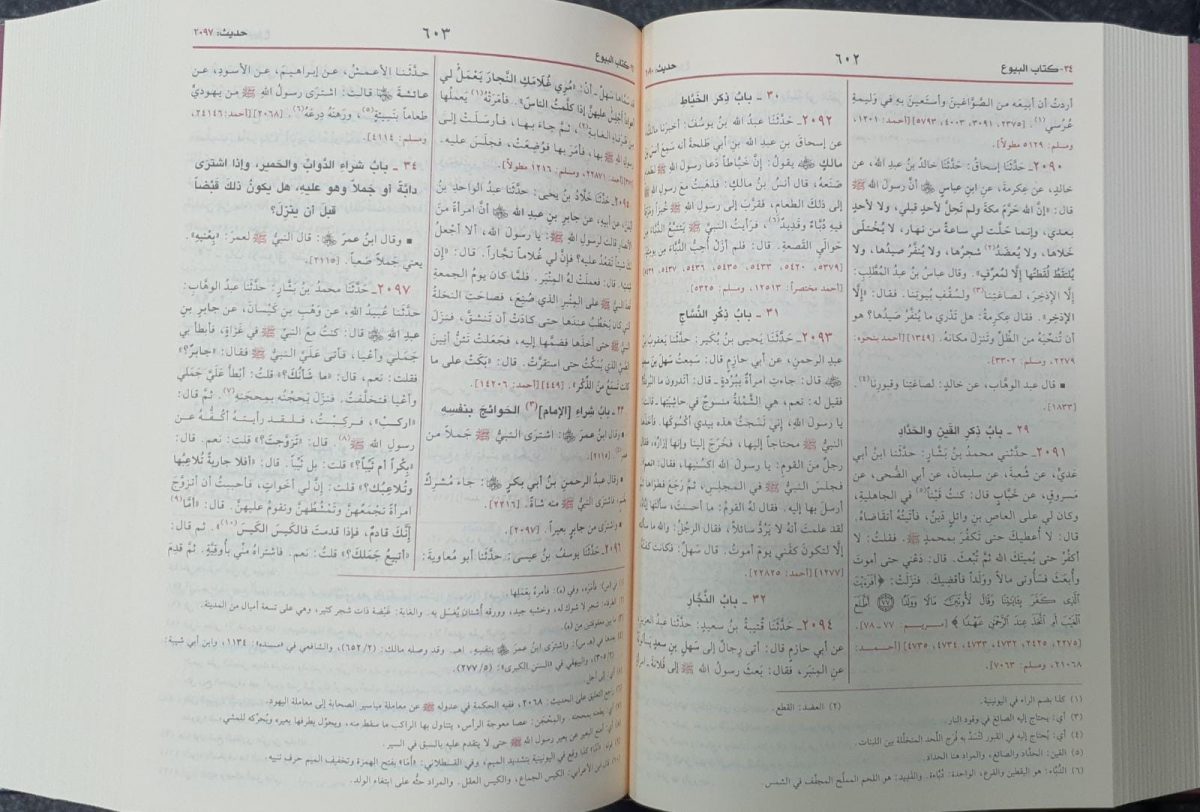 ٣٤- كتاب البيوع
٦٠٢
حديث: ٢٠٩٠
أردتُ أن أبيعه من الصَّوَّاغين وأستعينَ به في وَليمةِ
عُرُسي(١). [٢٣٧٥، ٣٠٩١، ٤٠٠٣، ٥٧٩٣] [أحمد: ١٢٠١،
ومسلم: ٥١٢٩ مطولاً].
٢٠٩٠- حَدَّثَنا إسحاقُ: حَدَّثَنا خالدُ بنُ عبدِ الله، عن
خالدٍ، عن عِكرِمةَ، عن ابنِ عباسٍ ﷺ أنَّ رسولَ الله ﷺ
قال: «إنَّ الله حَرَّمَ مكةَ ولم تَحِلَّ لأحدٍ قبلي، ولا لأحدٍ
بعدي، وإنما حلَّت لي ساعةً من نهارٍ، لا يُختَلى
خَلاها، ولا يُعضَدُ(٢) شجرُها، ولا يُنفَّرُ صيدُها، ولا
يُلتَقَطُ لُقَطتُها إلَّا لمُعرِّفٍ». وقال عباسُ بنُ عبدِ المُطَّلِبِ:
إلَّا الإذخِرَ، لصاغَتِنا(٣) ولسُقُفِ بُيوتِنا. فقال: «إلَّا
الإذخِرَ». فقال عِكرمةُ: هل تَدْري ما يُنفَّرُ صَيدُها؟ هو
أن تُنحِّيَهُ من الظِّلِّ وتَنزِلَ مكانَه. [١٣٤٩] [أحمد بنحوه:
٢٢٧٩، ومسلم: ٣٣٠٢].
▪ قال عبد الوهَّاب، عن خالدٍ: لصاغَتِنا وقبورِنا(٤).
[١٨٣٣].
٢٩ ـ بابُ ذِكرِ القَينِ والحَدَّادِ
٢٠٩١ـ حَدَّثني محمدُ بنُ بَشَّارٍ: حَدَّثنا ابنُ أبي
عَديٍّ، عن شُعبةَ، عن سليمانَ، عن أبي الضُّحى، عن
مَسروقٍ، عن خَبَّابٍ قال: كنتُ قَيْناً(٥) في الجاهلية،
وكان لي على العاصِ بنِ وائلٍ دَينٌ، فأتيتُه أتقاضاهُ.
قال: لا أُعطيكَ حتى تَكفُرَ بمحمدٍ ﷺ. فقلتُ: لا
أكفُرُ حتى يُميتَكَ الله ثمَّ تُبْعَثَ. قال: دَعْني حتى أموتَ
وأُبعَثَ فسأُوتى مالاً وولَداً فأَقضِيَكَ. فنزَلَتْ: ﴿أَفَرَءَيْتَ
ٱلَّذِى كَفَرَ بِـَٔايَـٰتِنَا وَقَالَ لَأُوتَيَنَّ مَالًا وَوَلَدًا ۝ أَطَّلَعَ
ٱلْغَيْبَ أَمِ ٱتَّخَذَ عِندَ ٱلرَّحْمَـٰنِ عَهْدًا﴾ [مريم: ٧٧ ـ ٧٨].
[٢٢٧٥، ٢٤٢٥، ٤٧٣٢، ٤٧٣٣، ٤٧٣٤، ٤٧٣٥] [أحمد:
٢١٠٦٨، ومسلم: ٧٠٦٣].
٣٠ ـ بابُ ذِكرِ الخَيَّاطِ
٢٠٩٢ـ حَدَّثَنا عبدُ الله بنُ يوسُفَ: أخبرنا مالكٌ،
عن إسحاقَ بنِ عبدِ الله بنِ أبي طَلحةَ أنه سمعَ أنسَ بنَ
مالكٍ ﷺ يقول: إنَّ خيَّاطاً دَعا رسولَ الله ﷺ لطعامٍ
صنَعَهُ، قال أنسُ بنُ مالكٍ: فذهبتُ معَ رسولِ الله ﷺ
إلى ذلكَ الطعامِ، فقرَّبَ إلى رسولِ الله ﷺ خُبزاً ومَرَقاً
فيه دُبَّاءٌ وقَديدٌ(٦)، فرأيتُ النبيَّ ﷺ يَتتبَّعُ الدُّبَّاءَ من
حَوالَيِ القَصعةِ. قال: فلم أزَلْ أُحِبُّ الدُّبَّاءَ من يومِئِذٍ.
[٥٣٧٩، ٥٤٢٠، ٥٤٣٣، ٥٤٣٥، ٥٤٣٦، ٥٤٣٧، ٥٤٣٩]
[أحمد مختصراً: ١٢٥١٣، ومسلم: ٥٣٢٥].
٣١ ـ بابُ ذِكْرِ النَّسَّاجِ
٢٠٩٣ـ حَدَّثَنا يحيى بنُ بُكَيرٍ: حَدَّثَنا يعقوبُ بنُ
عبدِ الرحمنِ، عن أبي حازمٍ قال: سَمِعتُ سهلَ بنَ سعدٍ
ﷺ قال: جاءتِ امرأةٌ بِبُردةٍ ـ قال: أتدرون ما البُردةُ؟
فقيل له: نعم، هي الشَّمْلةُ منسوجٌ في حاشيتها ـ قالت:
يا رسولَ الله، إني نَسَجْتُ هذه بيدي أكسُوكَها. فأخذَها
النبيُّ ﷺ محتاجاً إليها، فخَرَجَ إلينا وإنها إزارُهُ، فقال
رجلٌ منَ القومِ: يا رسولَ الله اكسُنِيها، فقال: «نعم».
فجلسَ النبيُّ ﷺ في المجلسِ، ثمَّ رَجَعَ فطَواها ثمَّ
أرسلَ بها إليه. فقال له القومُ: ما أحسَنتَ، سألتَها إيَّاهُ،
لقد علمتَ أنه لا يَرُدُّ سائلاً، فقال الرجُلُ: والله ما سألتُه
إلَّا لتكونَ كفَني يومَ أموتُ. قال سَهْلٌ: فكانت كفَنَهُ.
[١٢٧٧] [أحمد: ٢٢٨٢٥].
٣٢ ـ بابُ النَّجَّارِ
٢٠٩٤ـ حَدَّثَنا قُتيبةُ بنُ سعيدٍ: حَدَّثَنا عبدُ العزيزِ،
عن أبي حازمٍ قال: أتى رِجالٌ إلى سَهْلِ بنِ سعدٍ يسألونَهُ
عن المِنبَرِ، فقال: بَعَثَ رسولُ الله ﷺ إلى فُلانةَ ـ امرأةٍ
(١) كذا بضم الراء في اليونينية.
(٢) العضد: القطع.
(٣) أي: يحتاج إليه الصائغ في وقود النار.
(٤) أي: يُحتاج إليه في القبور لتُسَدَّ به فُرَج اللَّحد المتخلِّلة بين اللبنات.
(٥) القين: الحدَّاد والصائغ، والمراد هنا الحداد.
(٦) الدُّبَّاء: هو اليقطين والقرع، الواحدة: دُبَّاءة. والقديد: هو اللحم المملَّح المجفَّف في الشمس.
٦٠٣
حديث: ٢٠٩٧
كتاب البيوع
قد سمَّاها سَهلٌ ـ أنْ: «مُرِي غُلامَكِ النَّجارَ يَعْمَلْ لي
أعواداً أجلِسُ عليهِنَّ إذا كلَّمتُ الناسَ». فأمَرَتْهُ(١) يَعمَلُها
من طَرْفاءِ الغابةِ(٢)، ثمَّ جاءَ بها، فأرسَلَتْ إلى
رسولِ الله ﷺ بها، فأمَرَ بها فوُضِعَتْ، فجلَسَ عليه.
[أحمد: ٢٢٨٧١، ومسلم: ١٢١٦ مطولاً].
٢٠٩٥ـ حَدَّثَنا خَلَّادُ بنُ يحيى: حَدَّثَنا عبدُ الواحدِ بنُ
أيمنَ، عن أبيه، عن جابرِ بنِ عبدِ الله ﷺ أنَّ امرأةً منَ
الأنصارِ قالت لرسولِ الله ﷺ: يا رسولَ الله، ألا أجعلُ
لكَ شيئاً تَقعُدُ عليه؟ فإنَّ لي غُلاماً نجَّاراً. قال: «إنْ
شئتِ». قال: فعمِلَتْ لهُ المِنْبَر. فلمَّا كان يومُ الجمعةِ
قعدَ النبيُّ ﷺ على المِنْبَرِ الذي صُنِعَ، فصاحَتِ النَّخلةُ
التي كان يَخطُبُ عندَها حتى كادَتْ أن تَنشَقَّ، فنزَلَ
النبيُّ ﷺ حتى أخذَها فضمَّها إليه، فجعلَتْ تَئِنُّ أنينَ
الصَّبيِّ الذي يُسَكَّتُ حتى استقرَّتْ. قال: «بَكَتْ على ما
كانتْ تَسمَعُ منَ الذِّكْرِ». [٤٤٩] [أحمد: ١٤٢٠٦].
٣٣ ـ بابُ شِراءِ [الإمام](٣) الحوائجَ بنفسِهِ
▪ وقال ابنُ عمرَ ﷺ: اشترى النَّبيُّ ﷺ جَملاً من
عمرَ(٤). [٢١١٥].
▪ وقال عبدُ الرحمنِ بنُ أبي بكرٍ ﷺ: جاءَ مُشركٌ
بغنمٍ، فاشترى النبيُّ ﷺ منه شاةً. [٢٢١٦].
▪ واشترى من جابرٍ بعيراً. [٢٠٩٧].
٢٠٩٦ـ حَدَّثَنا يوسفُ بنُ عيسى: حَدَّثَنا أبو مُعاويةَ:
حدَّثَنا الأعمشُ، عن إبراهيمَ، عن الأسودِ، عن
عائشةَ ﷺ قالت: اشترَى رسولُ اللهِ ﷺ من يهوديٍّ
طعاماً بنَسِيئةٍ(٥)، ورَهَنهُ دِرعَهُ(٦). [٢٠٦٨] [أحمد: ٢٤١٤٦،
ومسلم: ٤١١٤].
٣٤ ـ بابُ شراءِ الدَّوابِّ والحَميرِ، وإذا اشترى
دابَّةً أو جَملاً وهو عليهِ، هل يكونُ ذلكَ قَبْضاً
قبلَ أن يَنزِلَ؟
▪ وقال ابنُ عمرَ ﷺ: قال النبيُّ ﷺ لعمرَ: «بِعْنيهِ».
يعني جَملاً صَعباً. [٢١١٥].
٢٠٩٧ـ حَدَّثَنا محمدُ بنُ بَشَّارٍ: حدَّثَنا عبدُ الوهابِ:
حدَّثَنا عُبيدُ الله، عن وَهْبِ بنِ كَيْسانَ، عن جابرِ بنِ
عبدِ الله ﷺ قال: كنتُ معَ النبيِّ ﷺ في غَزاةٍ، فأبطأَ بي
جَمَلي وأعيا، فأتى عليَّ النبيُّ ﷺ فقال: «جابرٌ؟»
فقلت: نعم، قال: «ما شأنُكَ؟» قلتُ: أبْطأَ عليَّ جَملي
وأعيا فتَخلَّفتُ. فنزَلَ يَحجُنُهُ بمِحجَنِهِ(٧). ثمَّ قال:
«اركبْ»، فركبتُ، فلقد رأيتهُ أكُفُّهُ عن
رسولِ الله ﷺ(٨). قال: «تَزوَّجتَ؟» قلت: نعم. قال:
«بِكراً أم ثَيِّباً؟» قلت: بل ثَيِّباً. قال: «أفلا جاريةً تُلاعِبُها
وتُلاعِبُك؟» قلت: إنَّ لي أخَواتٍ، فأحببتُ أن أتزوَّجَ
امرأةً تَجْمَعُهنَّ وتَمْشُطُهنَّ وتقومُ عليهنَّ. قال: «أمَّا(٩)
إنَّكَ قادمٌ، فإذا قدمتَ فالكَيسَ الكَيسَ(١٠)». ثم قال:
«أتَبيعُ جَملَكَ؟» قلتُ: نعم. فاشتراهُ منِّي بأُوقيَّةٍ. ثمَّ قَدِمَ
(١) فأمَرَه، وفي (ه): فأمرهُ يعملها.
(٢) الطرفاء: شجر لا شوك له، وخشبه جيد، وورقه أُشنان يُغسل به. والغابة: غَيْضة ذات شجر كثير، وهي على تسعة أميال من المدينة.
(٣) ما بين معقوفتين من (ه).
(٤) بعدها في (ه، س): واشترى ابنُ عمرَ ﷺ بنفسِهِ. اهـ. وقد وصله مالك: (٢/ ٦٥٢)، والشافعي في «مسنده»: ١١٣٤، وابن أبي شيبة:
والبيهقي في «السنن الكبرى»: (٥/ ٢٧٧).
(٥) أي: إلى أجل.
(٦) راجع التعليق على الحديث: ٢٠٦٨، ففيه الحكمة في عدوله ﷺ عن معاملة مياسير الصحابة إلى معاملة اليهود.
(٧) أي: يضربه بمحجنه. والمِحْجَن: عصا معوجة الرأس، يتناول بها الراكب ما سقط منه، ويحوِّل بطرفها بعيره ويُحرِّكه للمشي.
(٨) أي: أمنع البعير عن بعير رسول الله ﷺ حتى لا يتقدم عليه بالسبق في السير.
(٩) كذا وقع في اليونينية بتشديد الميم، وفي القسطلاني: «أمَا» بفتح الهمزة وتخفيف الميم حرف تنبيه.
(١٠) قال ابن الأعرابي: الكَيس الجماع، والكيس العقل. والمراد حثُّه على ابتغاء الولد.